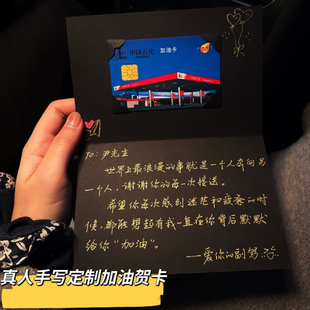 中国石化
加油卡
TO: 尹先生
世界上最浪漫的事就是一个人奔向另
一个人，谢谢你的每一次接送。
希望你每次感到迷茫和疲惫的时
候，都能想起有我一直在你背后默默
给你“加油”。
——爱你的副驾
真人手写定制加油贺卡